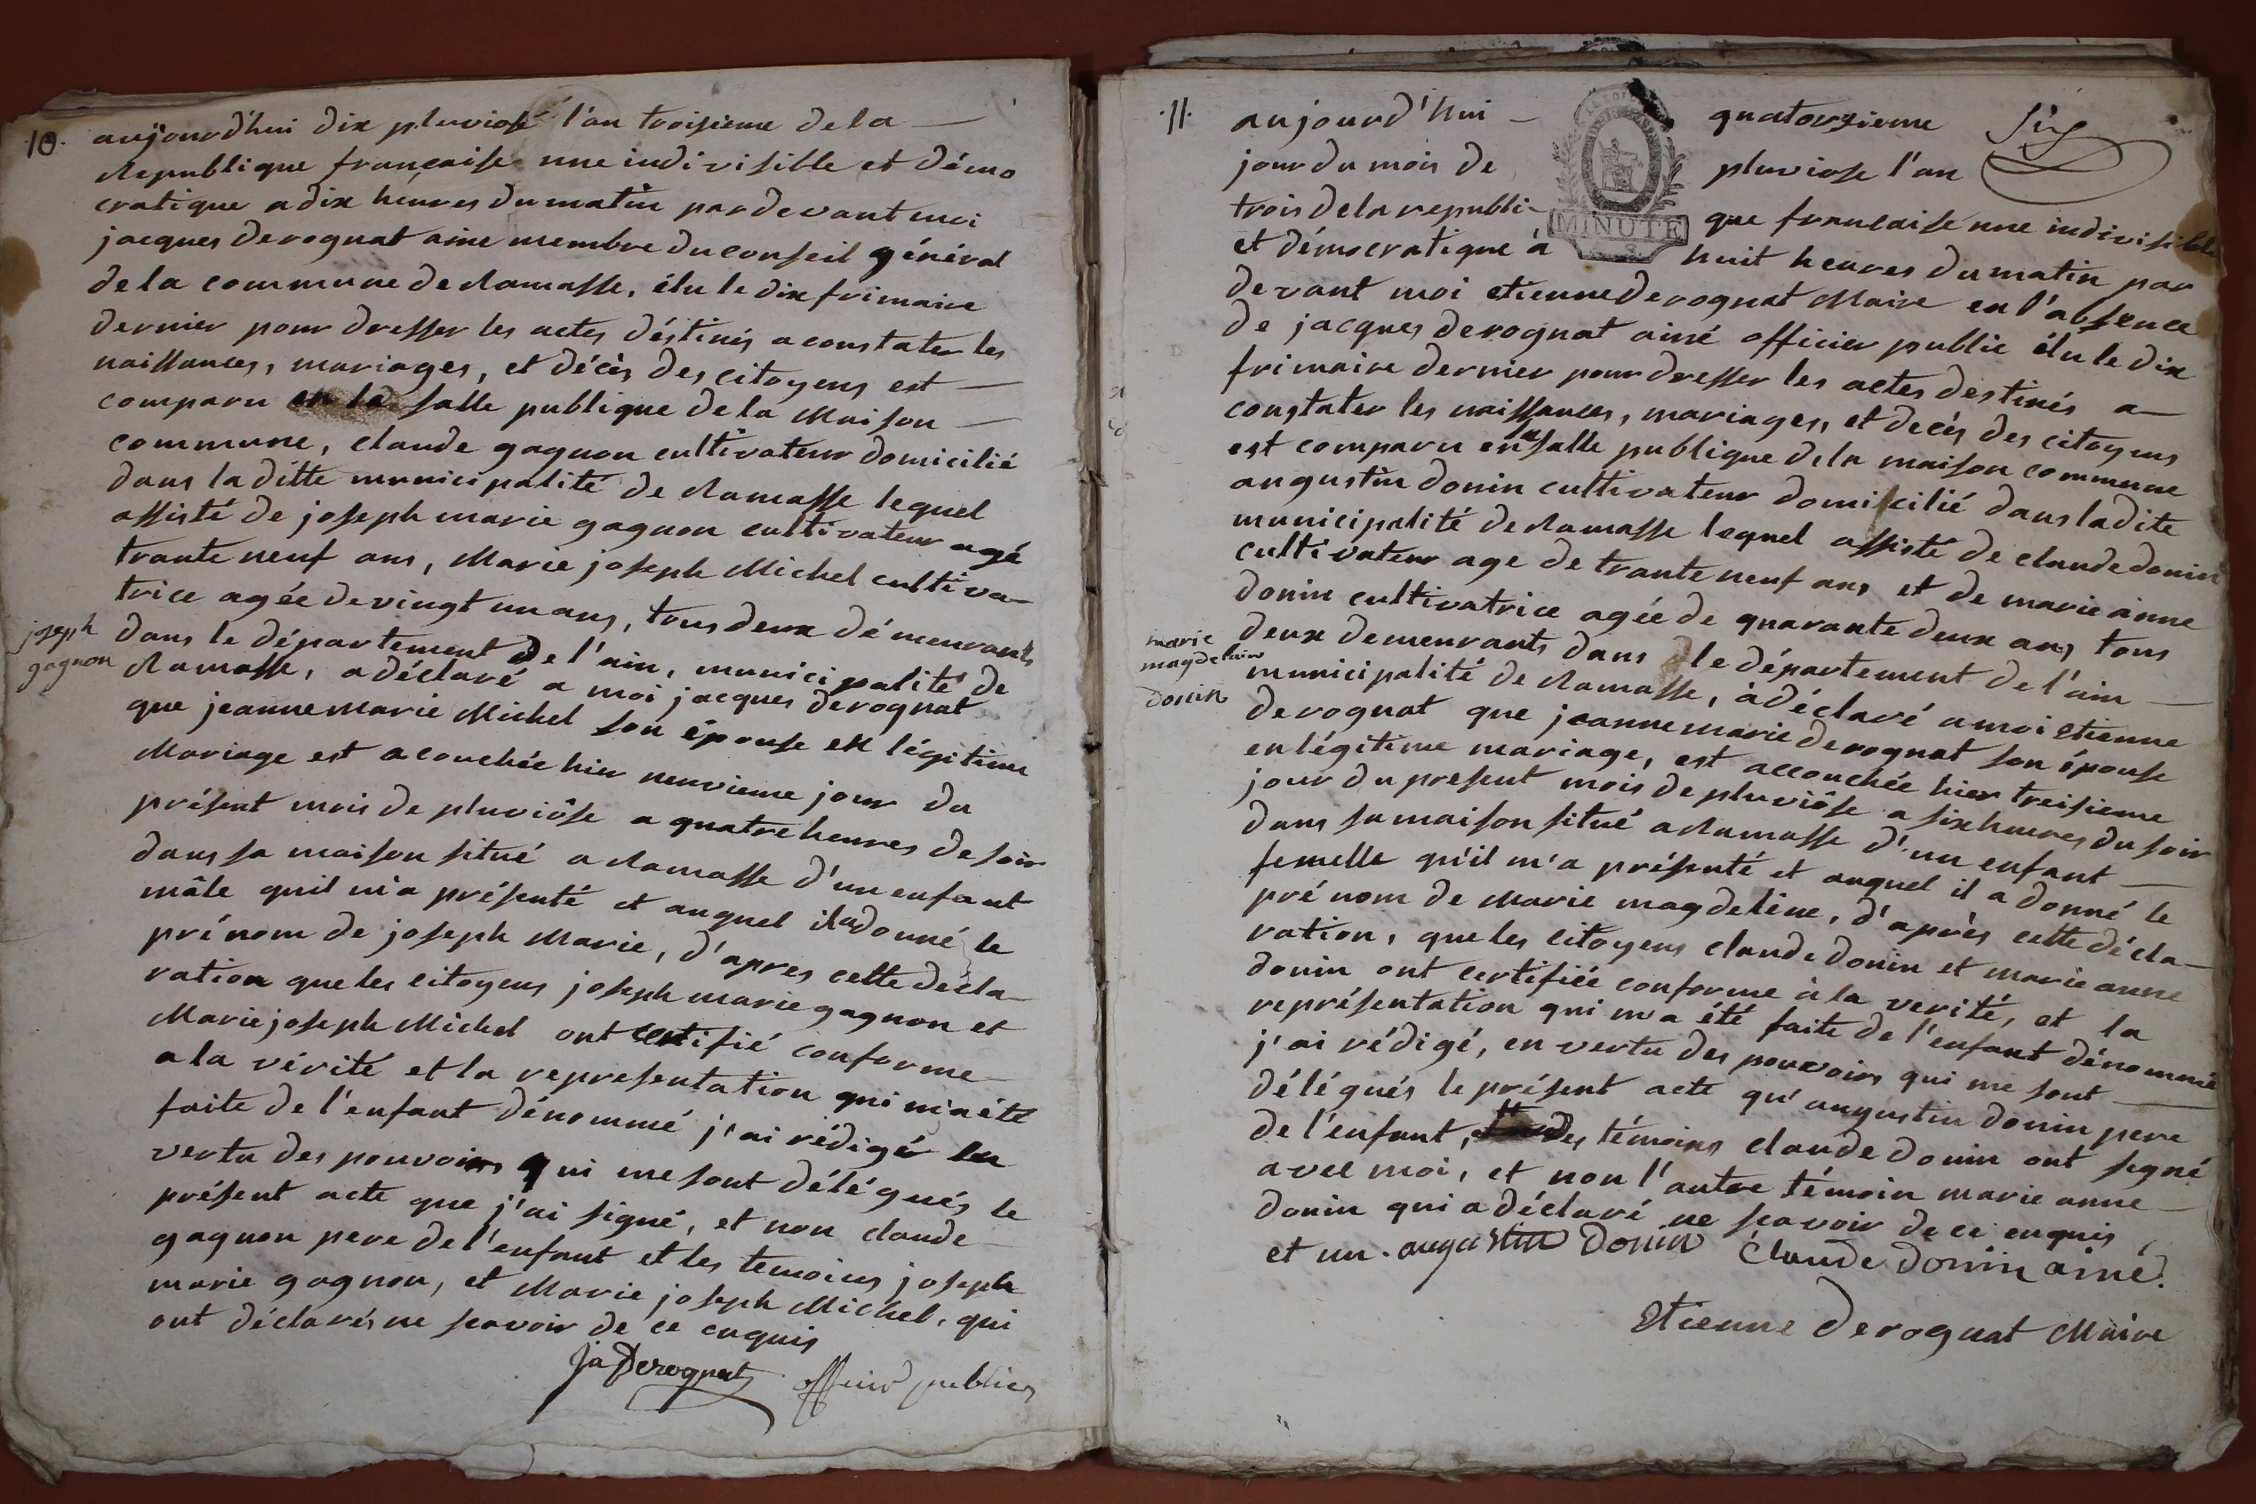 .10. aujourd'hui dix pluviose l'an troisieme de la —
Republique française une indivisible et démo
cratique a dix heures du matin pardevant moi
jacques derognat aine membre du conseil général
de la commune de Ramasse, élu le dix frimaire
dernier pour dresser les actes déstinés a constater les
naissances, mariages, et décès des citoyens est —
comparu en la salle publique de la Maison —
commune, claude gagnon cultivateur domicilié
dans la ditte municipalité de Ramasse lequel
assisté de joseph marie gagnon cultivateur agé
trante neuf ans, Marie joseph Michel cultiva-
trice agée de vingt un ans, tous deux démeurants
joseph
gagnon
dans le département de l'ain, municipalité de
Ramasse, a déclaré a moi jacques derognat
que jeanne marie Michel son épouse en légitime
Mariage est acouchée hier neuvieme jour du
présent mois de pluviôse a quatre heures de soir
dans sa maison situé a Ramasse d'un enfant
mâle quil m'a présenté et auquel il a donné le
prénom de joseph Marie, d'apres cette decla-
ration que les citoyens joseph marie gagnon et
Marie joseph Michel ont certifié conforme
a la vérité et la representation qui m'a été
faite de l'enfant dénommé j'ai rédigé en
vertu des pouvoirs qui me sont délégués le
présent acte que j'ai signé, et non claude
gagnon pere de l'enfant et les temoins joseph
marie gagnon, et Marie joseph Michel, qui
ont déclarés ne scavoir de ce enquis
ja Derognat officier public
.11. aujourd'hui — quatorzieme
jour du mois de pluviose l'an
trois de la republi- que francaise une indivisible
MINUTE
et démocratique à huit heures du matin par
devant moi etienne derognat Maire en l'absence
de jacques derognat ainé officier public élu le dix
frimaire dernier pour dresser les actes destinés a —
constater les naissances, mariages, et decès des citoyens
est comparu en la salle publique de la maison commune
augustin donin cultivateur domicilié dans ladite
municipalité de Ramasse lequel assisté de claude donin
cultivateur age de trante neuf ans et de marie anne
donin cultivatrice agée de quarante deux ans tous
marie
magdelaine
donin
deux demeurants dans le département de l'ain —
municipalité de Ramasse, à déclaré a moi etienne
derognat que jeanne marie derognat son épouse
en légitime mariage, est accouchée hier treisieme
jour du present mois de pluviôse a six heures du soir
dans sa maison situé a Ramasse d'un enfant —
femelle qu'il m'a présenté et auquel il a donné le
prénom de Marie magdeleine, d'après cette décla-
ration, que les citoyens claude donin et marie anne
donin ont certifiée conforme à la verité, et la
représentation qui m'a été faite de l'enfant dénommé
j'ai rédigé, en vertu des pouvoirs qui me sont —
délégués le présent acte qu'augustin donin pere
de l'enfant, des témoins claude donin ont signé
avec moi, et non l'autre témoin marie anne —
donin qui a déclaré ne scavoir de ce enquis
et un. augustin donin Claude donin ainé.
Etienne derognat Maire